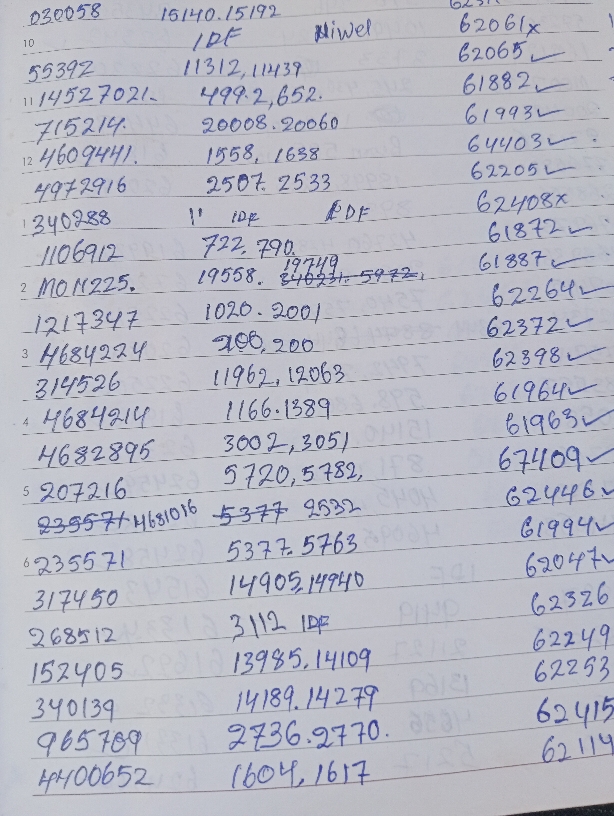 030058 15140.15192
10 IDF Niwel 62061x
55392 11312,11439 62065✓
11 14527021. 499.2,652. 61882✓
715214. 20008.20060 61993✓
12 4609441. 1558, 1638 64403✓
4972916 2507. 2533 62205✓
1 340288 11 IDF IDF 62408x
1106912 722,790. 61872✓
2 MON225. 19558. 19749 61887✓
1217347 1020.2001 62264✓
3 4684224 200,200 62372✓
314526 11962,12063 62398✓
4 4684214 1166.1389 61964✓
4682895 3002,3051 61963✓
5 207216 5720,5782, 67409✓
235571 4681016 5377 2532 62446✓
6 235571 5377.5763 61994✓
317450 14905,14940 62047✓
268512 3112 IDF 62326
152405 13985,14109 62249
340139 14189.14279 62253
965709 2736.2770. 62415
4400652 1604,1617 62114